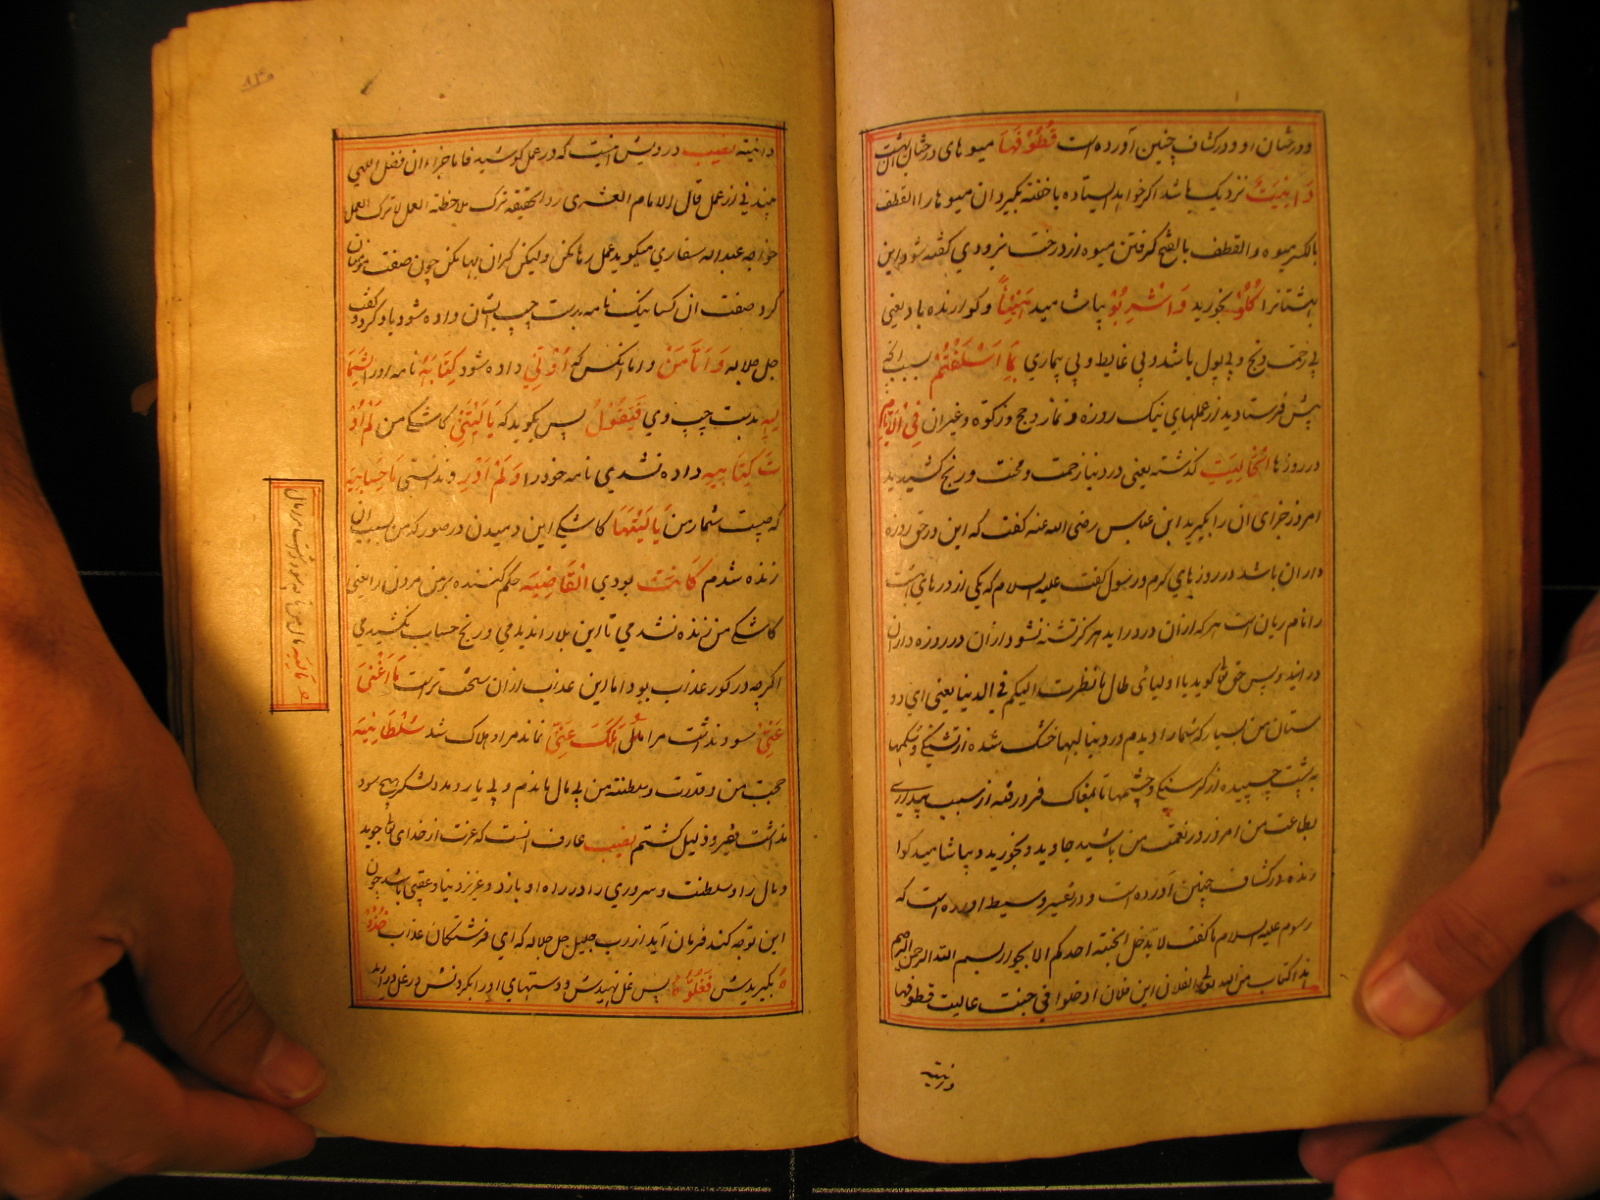 و درخشان او و در کشاف چنین آورده است قُطُوْفُهَا میوهای درختان بهشت ان
دَانِیَتٌ نزدیک باشد اکر خواهد ایستاده یا خفته بکیرد ان میوها را القطف
بالکسر میوه و القطف بالفتح کرفتن میوه از درخت بزودی کفته شود این
بهشتانرا کُلُوْا بخورید وَاشْرَبُوْا بیاشامید هَنِیْئًا و کوارنده باد یعنی
بی زحمت و رنج و بی بول باشد و بی غایط و بی بیماری بِمَا اَسْلَفْتُمْ بسبب انچه
پیش فرستادید از عملهای نیک روزه و نماز و حج و زکوة و غیر ان فِی الْاَیَّامِ
در روزها الْخَالِیَتِ کذشته یعنی در دنیا زحمت و محنت و رنج کشیدید
امروز جزای ان را بکیرید ابن عباس رضی الله عنه کفت که این در حق روزه
داران باشد در روزهای کرم و رسول کفت علیه السلام که یکی از درهای بهشت
را نام ریان است هر که از ان در در اید هرکز تشنه نشود از ان در روزه داران
در ایند و پس حق تعالی کوید یا اولیائی طال ما نظرت الیکم فی الدنیا یعنی ای دو
ستان من بسیار که شما را دیدم در دنیا لبها خشک شده از تشنکی و شکمها
به پشت چسپیده از کرسنکی و چشمها تا بمغاک فرو رفته از سبب بیداری
بطاعت من امروز در نعمت من باشید جاوید و بخورید و بیاشامید کوا
رنده در کشاف چنین آورده است و در تفسیر وسیط اورده است که
رسوم علیه السلام ما کفت لا یدخل الجنة احدکم الا بجواز بسم الله الرحمن الرحیم
هذا کتاب من الله تعالی لفلان ابن فلان ادخلوا فی جنت عالیت قطوفها
دانیته
دانیته نصیب درویش انیست که در عمل کوشید فاما جزاء ان فضل الهی
بیند نی از عمل قال الامام القشری رد الحقیقه ترک ملاحظته العمل لا ترک العمل
خواجه عبد الله سفاری میکوید عمل رها مکن ولیکن کران بها مکن چون صفت مومنان
کرد صفت ان کسانیک نامه بدست چپ ایشان داده شود یاد کرد و کفت
جل جلاله وَاَمَّا مَنْ و اما انکس که اُوْتِیَ داده شود کِتَابَهٗ نامه او را بِشِمَا
لِهٖ بدست چپ وی فَیَقُوْلُ پس بکوید که یَا لَیْتَنِیْ کاشکی من لَمْ اُوْ
تَ کِتَابِیَه داده نشدی نامه خود را وَلَمْ اَدْرِ و ندانستی مَا حِسَابِیَه
که چیست شمار من یَا لَیْتَهَا کاشکی این دمیدن در صور که من بسبب ان
زنده شدم کَانَتْ بودی الْقَاضِیَه حکم کننده بر من مردن را یعنی
کاشکی من زنده نشدمی تا این بلا را ندیدمی و رنج حساب نکشیدمی
اکرچه در کور عذاب بود اما این عذاب از ان سخت تر است مَا اَغْنٰی
عَنِّیْ سود نداشت مرا مالی هَلَکَ عَنِّیْ نماند مرا و هلاک شد سُلْطَانِیَه
حجت من و قدرت و سلطنته من بی مال ماندم و بی یار و مدد لشکر هیچ سود
نداشت فقیر و ذلیل کشتم نصیب عارف انست که عزت از خدای تعالی جوید
و مال را و سلطنت و سروری را در راه او بازد و عزیز دنیا و عقبی باشد چون
این توجه کند فرمان آید از رب جلیل جل جلاله که ای فرشتکان عذاب خُذُوْ
هُ بکیریدش فَغُلُّوْهُ پس غل نهیدش و دستهای او را بکردنش در غل در ارید